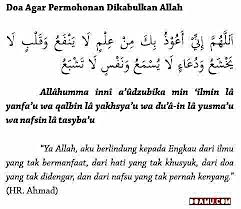 Doa Agar Permohonan Dikabulkan Allah
اَللّٰهُمَّ إِنِّيْ أَعُوْذُ بِكَ مِنْ عِلْمٍ لَا يَنْفَعُ وَقَلْبٍ لَا
يَخْشَعُ وَدُعَاءٍ لَا يُسْمَعُ وَنَفْسٍ لَا تَشْبَعُ
Allâhumma inni a'ûdzubika min 'ilmin lâ
yanfa'u wa qalbin lâ yakhsya'u wa du'â-in lâ yusma'u
wa nafsin lâ tasyba'u
"Ya Allah, aku berlindung kepada Engkau dari ilmu
yang tak bermanfaat, dari hati yang tak khusyuk, dari doa
yang tak didengar, dan dari nafsu yang tak pernah kenyang."
(HR. Ahmad)
DOAMU.COM